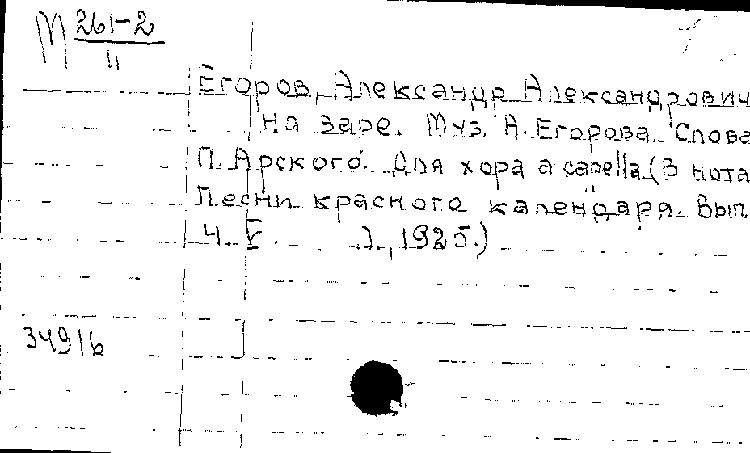 М 261-2
11
Егоров, Александр Александрович
На заре. Муз. А. Егорова. Слова
П. Арского. Для хора a capella (В нота
Песни красного календаря. Вып.
4. 1925.)
34916